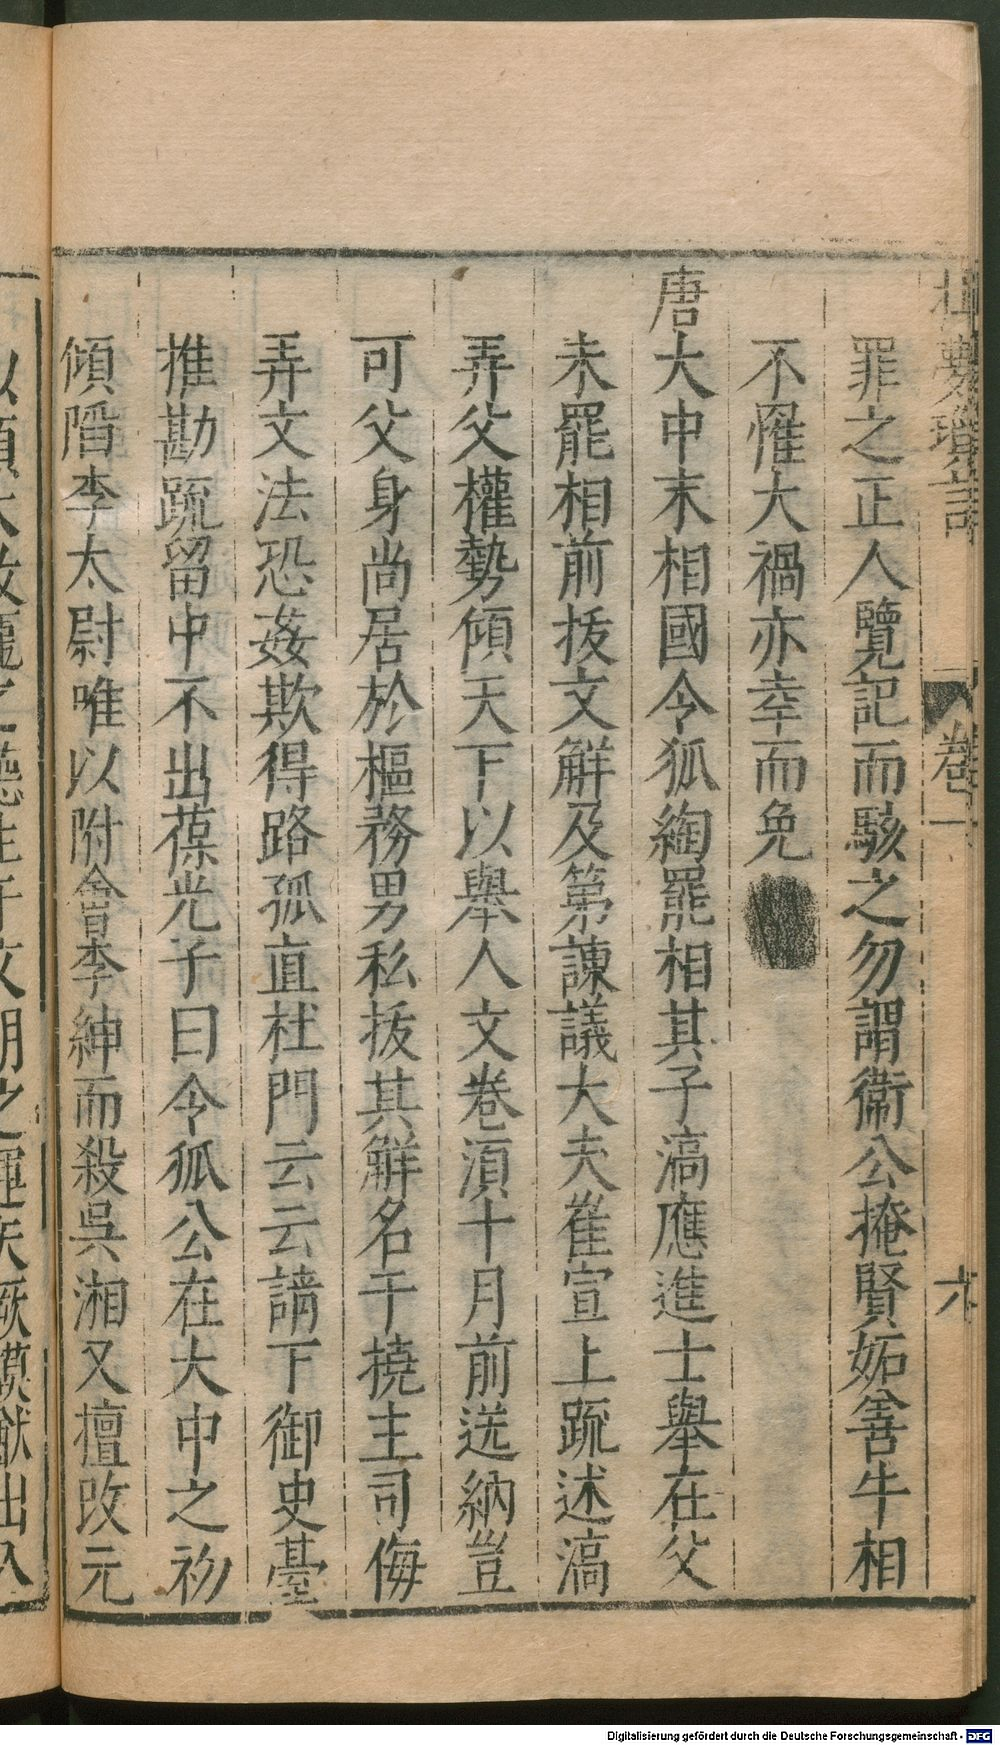 北夢瑣言 卷一 六
罪之正人覽記而駭之勿謂衞公掩賢妬善牛相
不罹大禍亦幸而免
唐大中末相國令狐綯罷相其子滈應進士舉在父
未罷相前拔文解及第諫議大夫崔宣上疏述滈
弄父權勢傾天下以舉人文卷湏十月前送納豈
可父身尚居於樞務男私拔其解名干撓主司侮
弄文法恐姦欺得路孤直杜門云云請下御史臺
推勘疏留中不出葆光子曰令狐公在大中之初
傾䧟李太尉唯以附會李紳而殺吳湘又擅改元
Digitalisierung gefördert durch die Deutsche Forschungsgemeinschaft - DFG